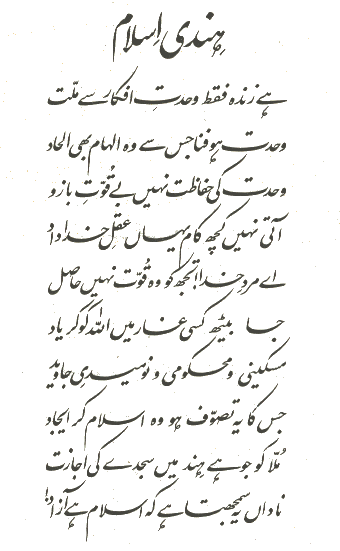 ہندی اِسلام
ہے زندہ فقط وحدتِ افکار سے ملّت
وحدت ہو فنا جس سے وہ الہام بھی الحاد
وحدت کی حفاظت نہیں بے قُوّتِ بازو
آتی نہیں کچھ کام یہاں عقلِ خداداد
اے مردِ خدا! تجھ کو وہ قُوّت نہیں حاصل
جا بیٹھ کسی غار میں اللہ کو کر یاد
مسکینی و محکومی و نومیدیِ جاوید
جس کا یہ تصوّف ہو وہ اسلام کر ایجاد
مُلّا کو جو ہے ہند میں سجدے کی اجازت
ناداں یہ سمجھتا ہے کہ اسلام ہے آزاد!